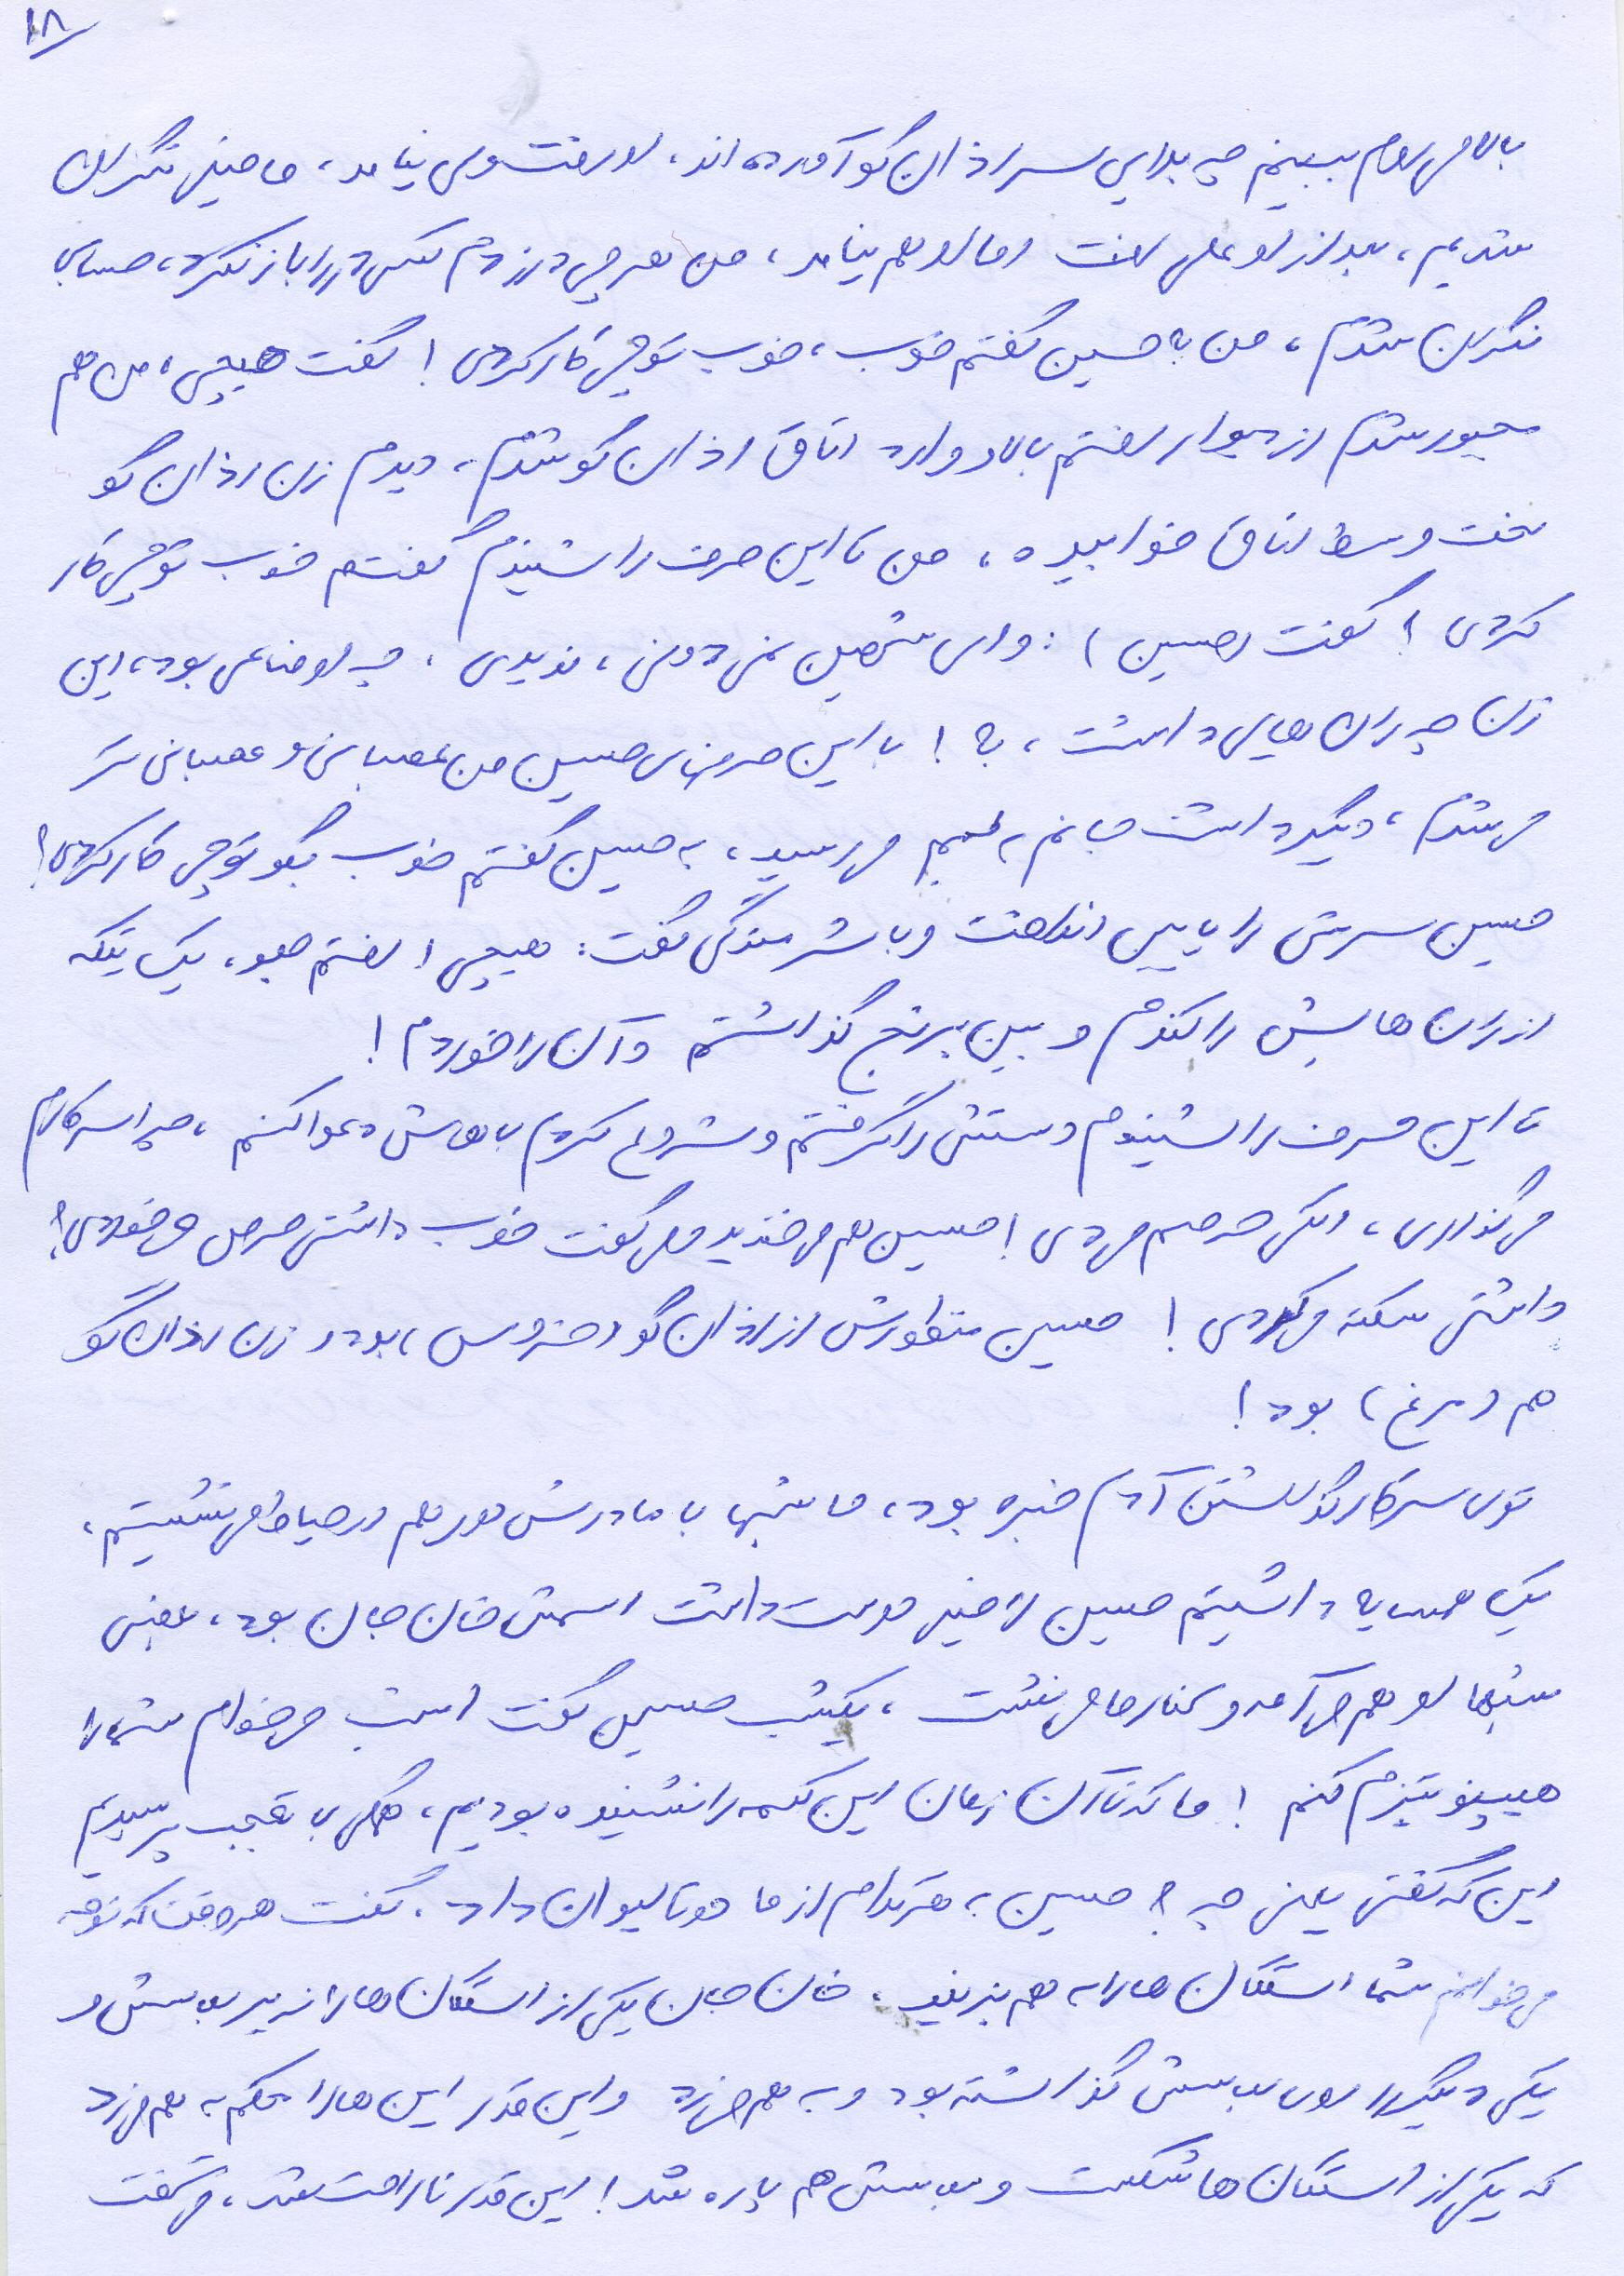 ۱۸
بالا می روم ببینم چه بلایی سر اذان گو آمده اند، او رفت ولی نیامد، ما خیلی نگران
شدیم، بعد از او علی رفت اما او هم نیامد، من هر چی در زدم کسی در را باز نکرد، حسابی
نگران شدم، من به حسین گفتم خوب، خوب تو چی کار کردی! گفت هیچی، من هم
مجبور شدم از دیوار رفتم بالا و وارد اتاق اذان گو شدم، دیدم زن اذان گو
لخت وسط اتاق خوابیده، من تا این حرف را شنیدم گفتم خوب تو چی کار
کردی؟ گفت (حسین): وای شهین نمی دونی، ندیدی، چه اوضاعی بود، این
زن چه ران هایی داشت، به! با این حرفهای حسین من عصبانی و عصبانی تر
می شدم، دیگر داشت جانم به لبم می رسید، به حسین گفتم خوب بگو تو چی کار کردی؟
حسین سرش را پایین انداخت و با شرمندگی گفت: هیچی! رفتم جلو، یک تیکه
از ران هایش را کندم و بین برنج گذاشتم و آن را خوردم!
تا این حرف را شنیدم دستش را گرفتم و شروع کردم باهاش دعوا کنم، چرا سر کارم
می گذاری، الکی حرصم می دی! حسین هم می خندید می گفت خوب داشتی حرص می خوردی؟
داشتی سکته می کردی! حسین منظورش از اذان گو (خروس) بود و زن اذان گو
هم (مرغ) بود!
توی سر کار گذاشتن آدم خبره بود، ما شبها با مادرش دور هم در حیاط می نشستیم،
یک همسایه داشتیم حسین را خیلی دوست داشت اسمش خان جان بود، بعضی
شبها او هم می آمد و کنار ما می نشست، یکشب حسین گفت امشب می خوام شما را
هیپنوتیزم کنم! ما که تا آن زمان این کلمه را نشنیده بودیم، همگی با تعجب پرسیدیم
این که گفتی یعنی چه؟ حسین به هر کدام از ما دو تا لیوان داد، گفت هر وقت که توجه
می خوانم شما استکان ها را به هم بزنید، خان جان یکی از استکان ها را زیر لباسش و
یکی دیگر را روی لباسش گذاشته بود و به هم می زد و این قدر این ها را محکم به هم می زد
که یکی از استکان ها شکست و لباسش هم پاره شد! این قدر ناراحت شد، می گفت